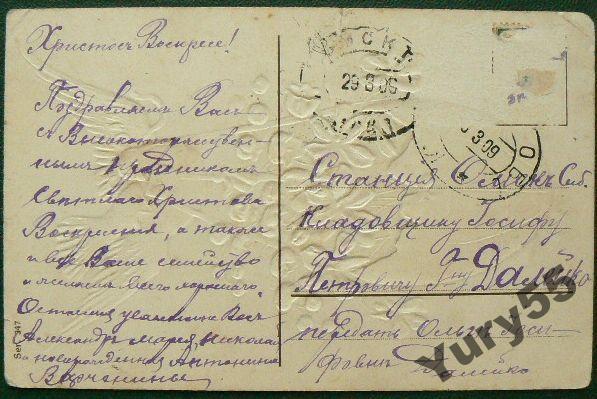 Христосъ Воскресе!
Поздравляемъ Васъ
съ Высокоторжествен-
нымъ праздникомъ
Светлаго Христова
Воскресения, а также
и все Ваше семейство
и желаемъ всего хорошаго.
Остаемся уважающие Васъ
Александръ Мария Николай
и новорожденная Антонина
Ser. 947
ОМСКЪ
29 3 09
3 09
Станция Омскъ Сиб.
Кладовщику Iосифу
Петровичу Г-ну Далейко
передать Ольге Iоси-
фовне Далейко
Yury55